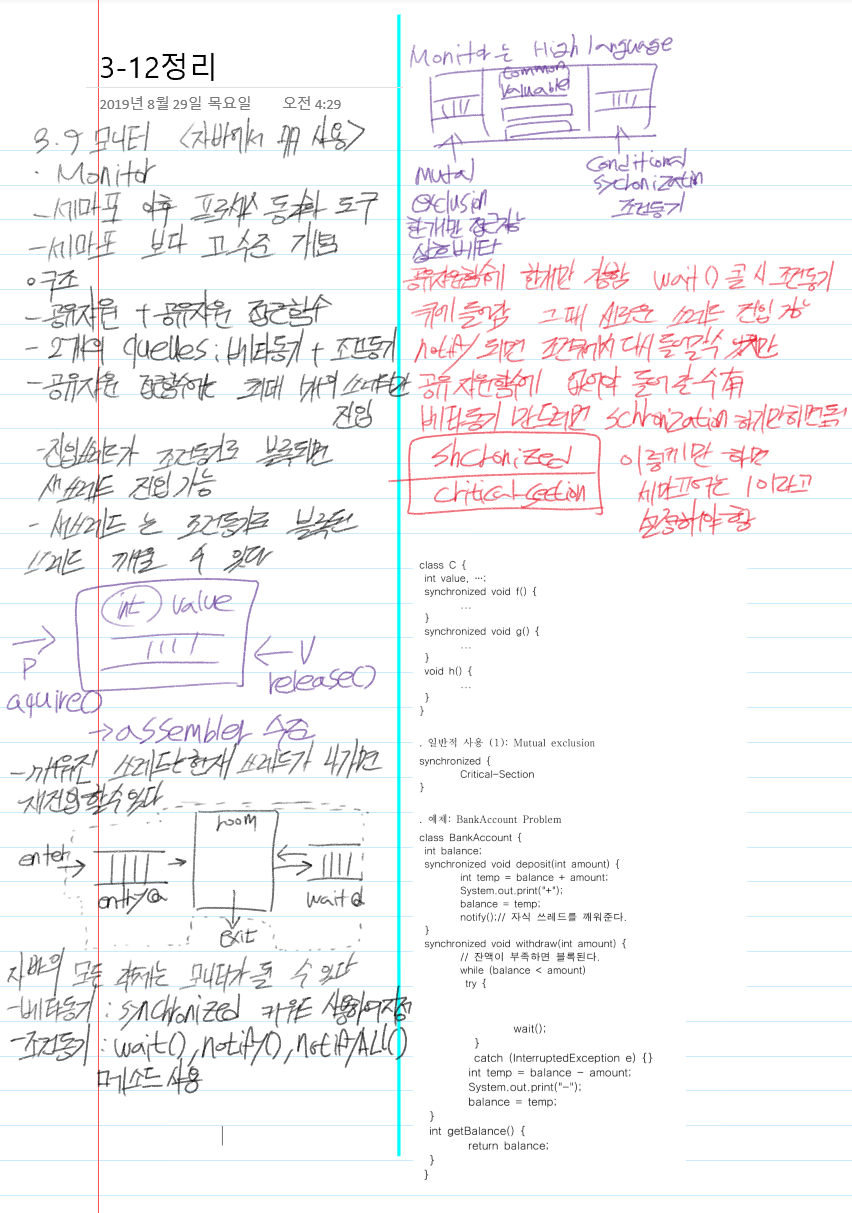 3-12정리
2019년 8월 29일 목요일 오전 4:29
3.9 모니터 <자바에서 사용>
· Monitor
- 세마포 이후 프로세스 동기화 도구
- 세마포 보다 고수준 개념
o 구조
- 공유자원 + 공유자원 접근함수
- 2개의 queues: 베타동기 + 조건동기
- 공유자원 접근함수에는 최대 1개의 쓰레드만
진입
- 진입쓰레드가 조건동기로 블록되면
새쓰레드 진입가능
- 새쓰레드는 조건동기로 블록된
쓰레드 깨울 수 있다
int value
P
aquire()
V
release()
→ assembler 수준
- 깨워진 쓰레드는 현재 쓰레드가 나가면
재진입 할수있다
room
enter
entry Q
wait Q
Exit
자바의 모든 객체는 모니터가 될 수 있다
- 베타동기 : synchronized 키워드 사용하여 지정
- 조건동기 : wait(), notify(), notifyALL()
메소드 사용
Monitor는 High language
common
valuable
Mutal
Exclusion
한개만 접근가능
상호베타
Conditional
sycronization
조건동기
공유자원함수에 한개만 접함 wait() 콜시 조건동기
큐에 들어감 그때 새로운 쓰레드 진입 가능
notify 되면 조건큐에서 다시 들어갈수 있지만
공유 자원함수에 없어야 들어 갈 수 有
베타동기 만드려면 schronization 하기만하면됨
shcronized
critical-section
이렇게만 하면
세마포어는 1이라고
설정해야 함
class C {
int value, …;
synchronized void f() {
...
}
synchronized void g() {
...
}
void h() {
...
}
}
. 일반적 사용 (1): Mutual exclusion
synchronized {
Critical-Section
}
. 예제: BankAccount Problem
class BankAccount {
int balance;
synchronized void deposit(int amount) {
int temp = balance + amount;
System.out.print("+");
balance = temp;
notify();// 자식 쓰레드를 깨워준다.
}
synchronized void withdraw(int amount) {
// 잔액이 부족하면 블록된다.
while (balance < amount)
try {
wait();
}
catch (InterruptedException e) {}
int temp = balance - amount;
System.out.print("-");
balance = temp;
}
int getBalance() {
return balance;
}
}